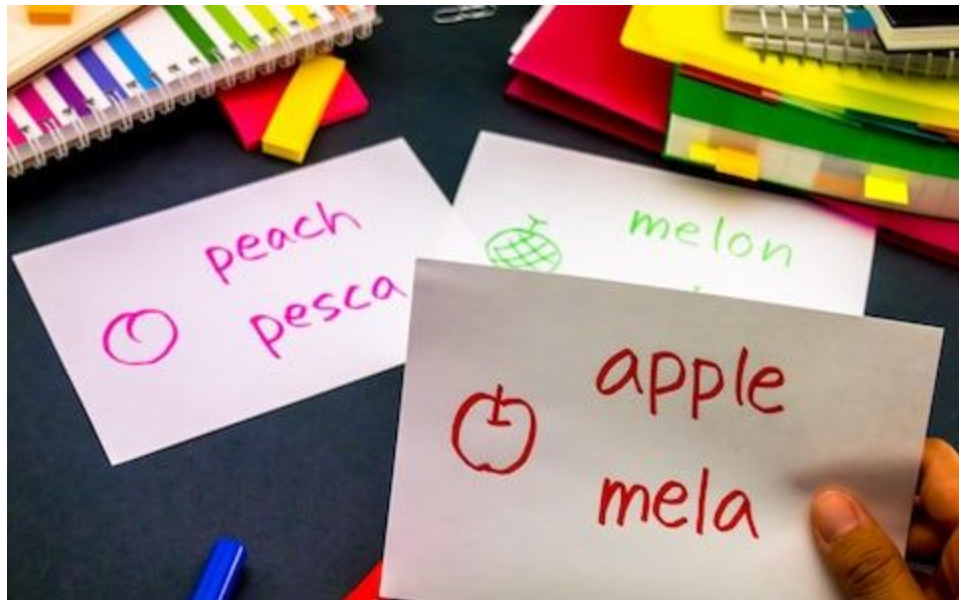 peach
pesca
melon
apple
mela